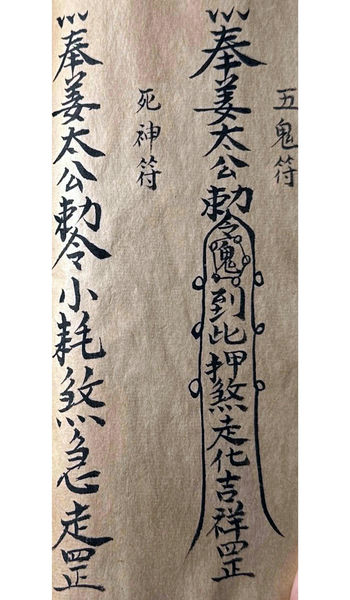 五鬼符
奉姜太公勅令鬼到此押煞走化吉祥罡
死神符
奉姜太公勅令小耗煞急走罡